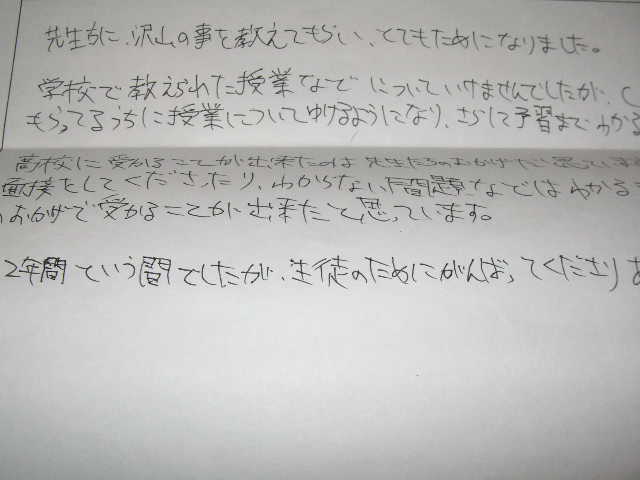 先生方に、沢山の事を教えてもらい、とてもためになりました。
学校で教えられた授業などについていけませんでしたが、
もらってるうちに授業についてゆけるようになり、さらに予習までわかる
高校に受かることが出来たのは先生たちのおかげだと思っています
面接をしてくださったり、わからない問題などではわかるま
おかげで受かることが出来たと思っています。
2年間という間でしたが、生徒のためにがんばってくださりあ